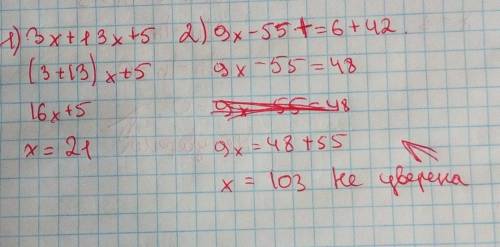 1) 3x+13x+5
(3+13)x+5
16x+5
x = 21
2) 9x-55+=6+42.
9x-55=48
9x-55=48
9x=48+55
x = 103 не уверена